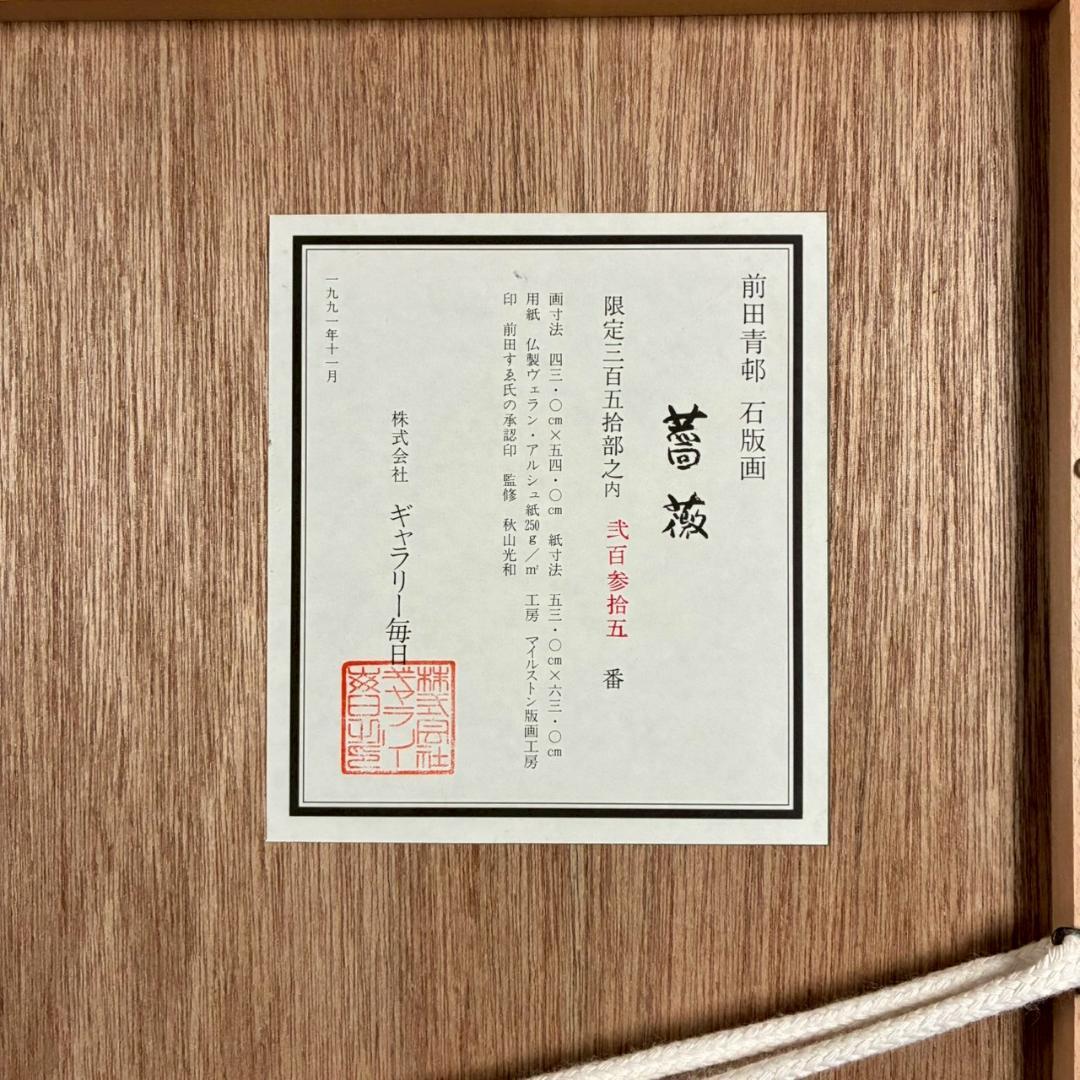 前田青邨 石版画
薔薇
限定三百五拾部之内 弐百参拾五 番
画寸法 四三・〇cm×五四・〇cm 紙寸法 五三・〇cm×六三・〇cm
用紙 仏製ヴェラン・アルシュ紙250g/㎡ 工房 マイルストン版画工房
印 前田すゑ氏の承認印 監修 秋山光和
株式会社 ギャラリー毎日
株式会社
ギャラリー
毎日之印
一九九一年十一月